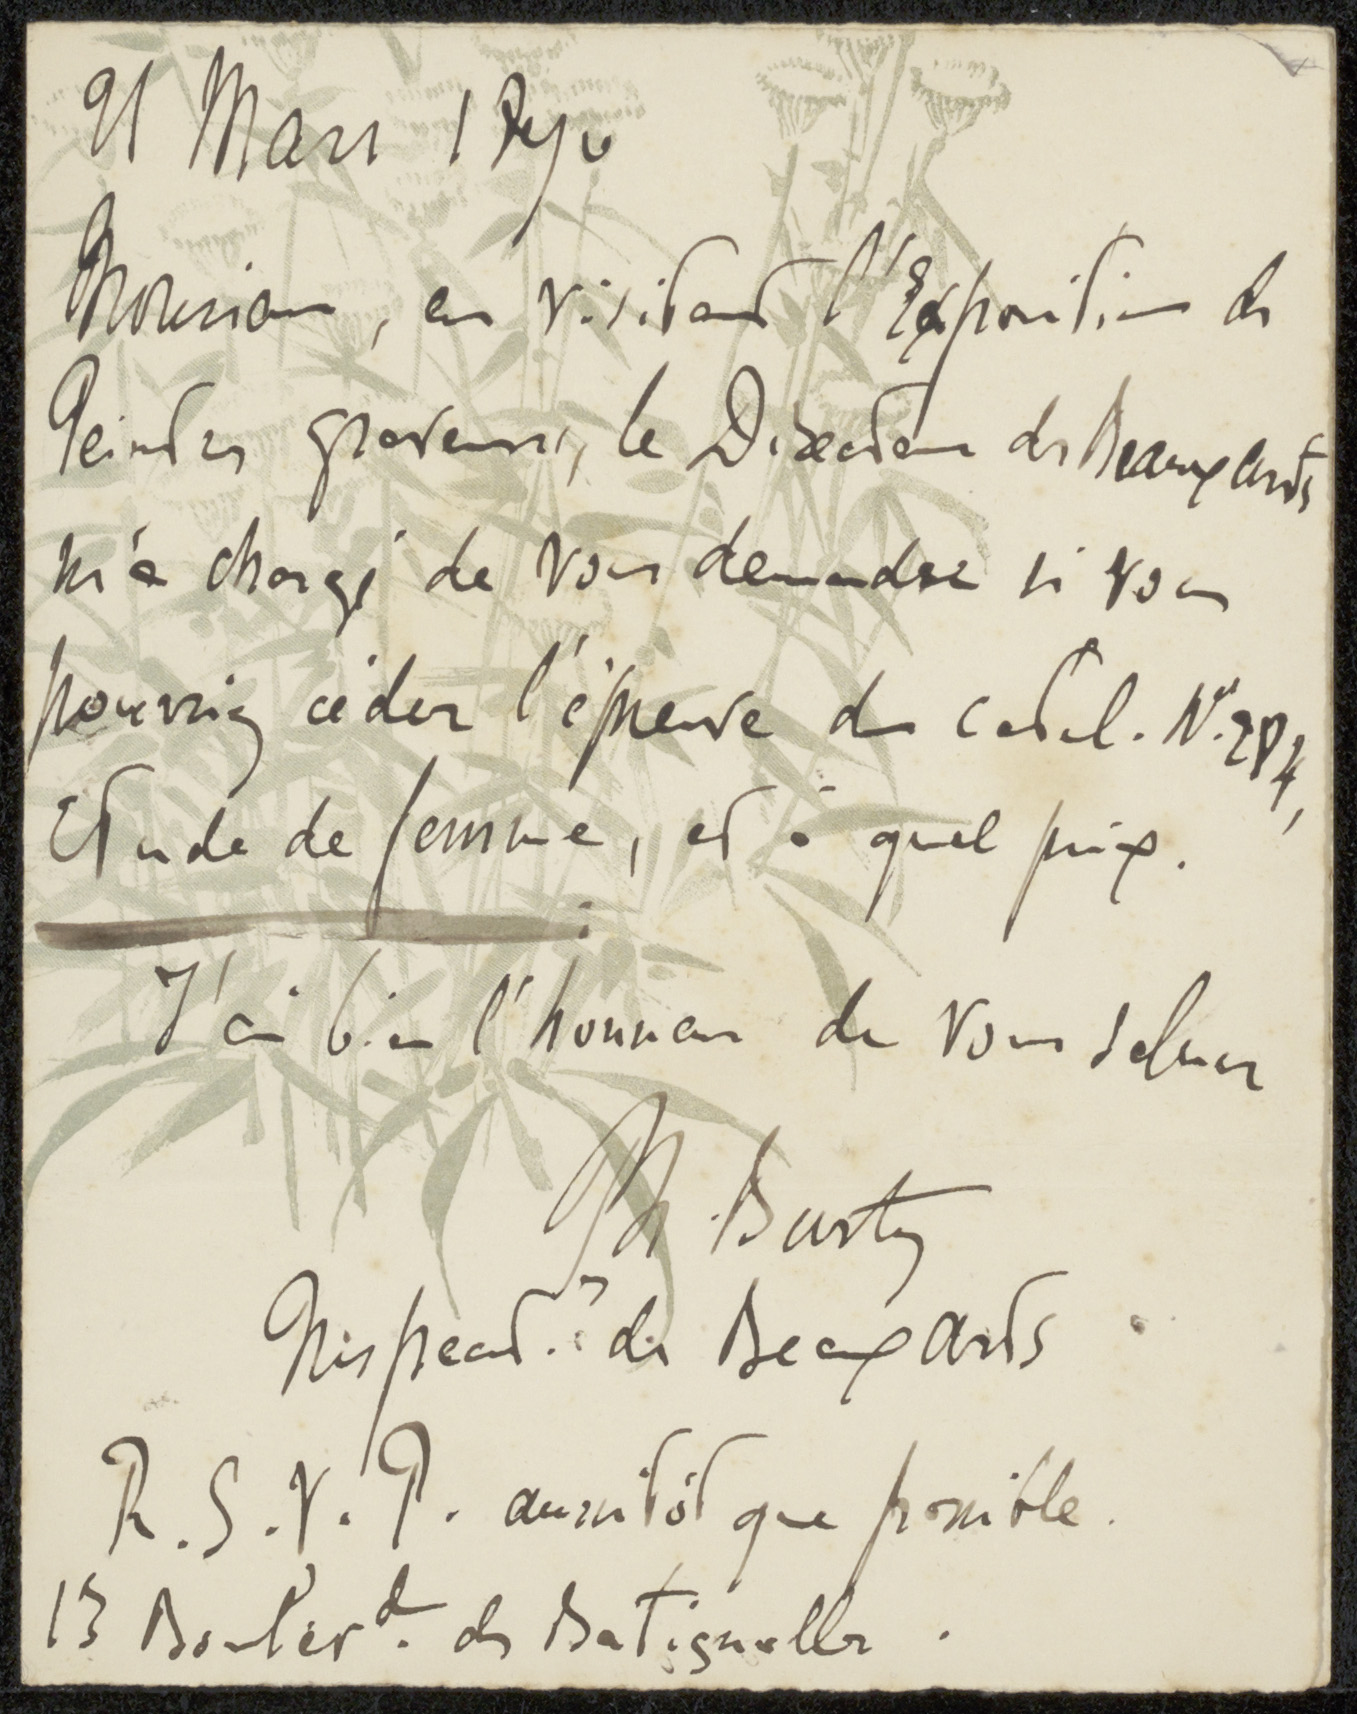 21 Mars 1890
Monsieur, en visitant l'Exposition des
Peintres graveurs, le Directeur des Beaux arts
m'a chargé de vous demander si vous
pourriez céder l'épreuve du catal. N° 284,
Etude de femme, et à quel prix.
J'ai bien l'honneur de vous saluer
Ph. Burty
Inspect.r des Beaux arts
R. S. V. P. aussitôt que possible.
13 Boulev.d des Batignolles.